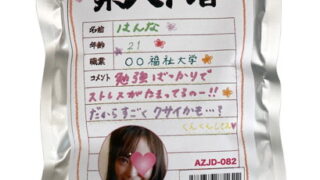 名前 はんな
年齢 21
職業 〇〇福祉大学
コメント 勉強ばっかりで
ストレスがたまってるのー!!
だからすごくクサイかも…?
くんくんしてネ
AZJD-082